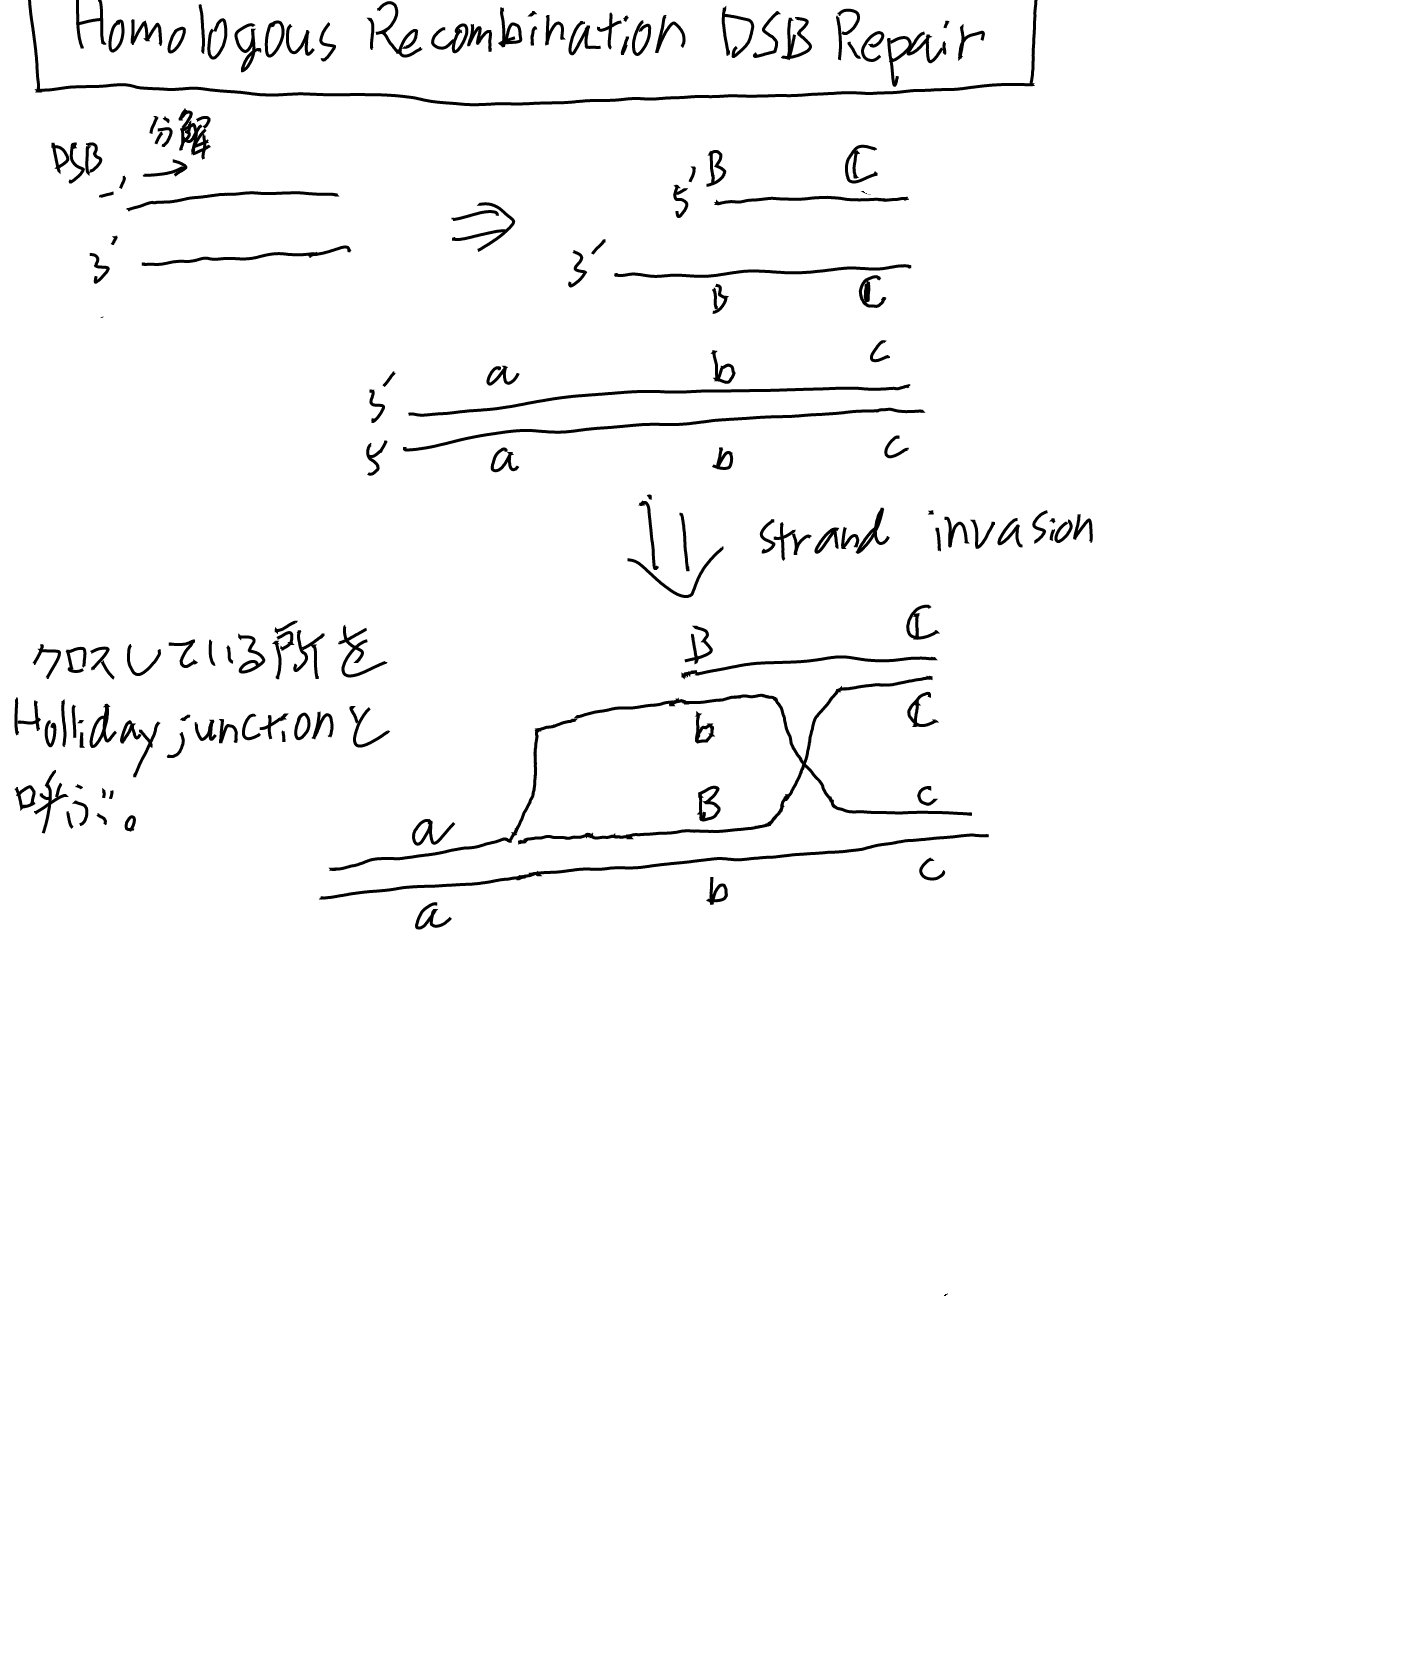 Homologous Recombination DSB Repair
分解
DSB
3′
5′ B C
3′
B C
a b c
3′
5′
a b c
strand invasion
B C
クロスしている所を
Holliday junctionと
呼ぶ。
b C
B c
a
a b c